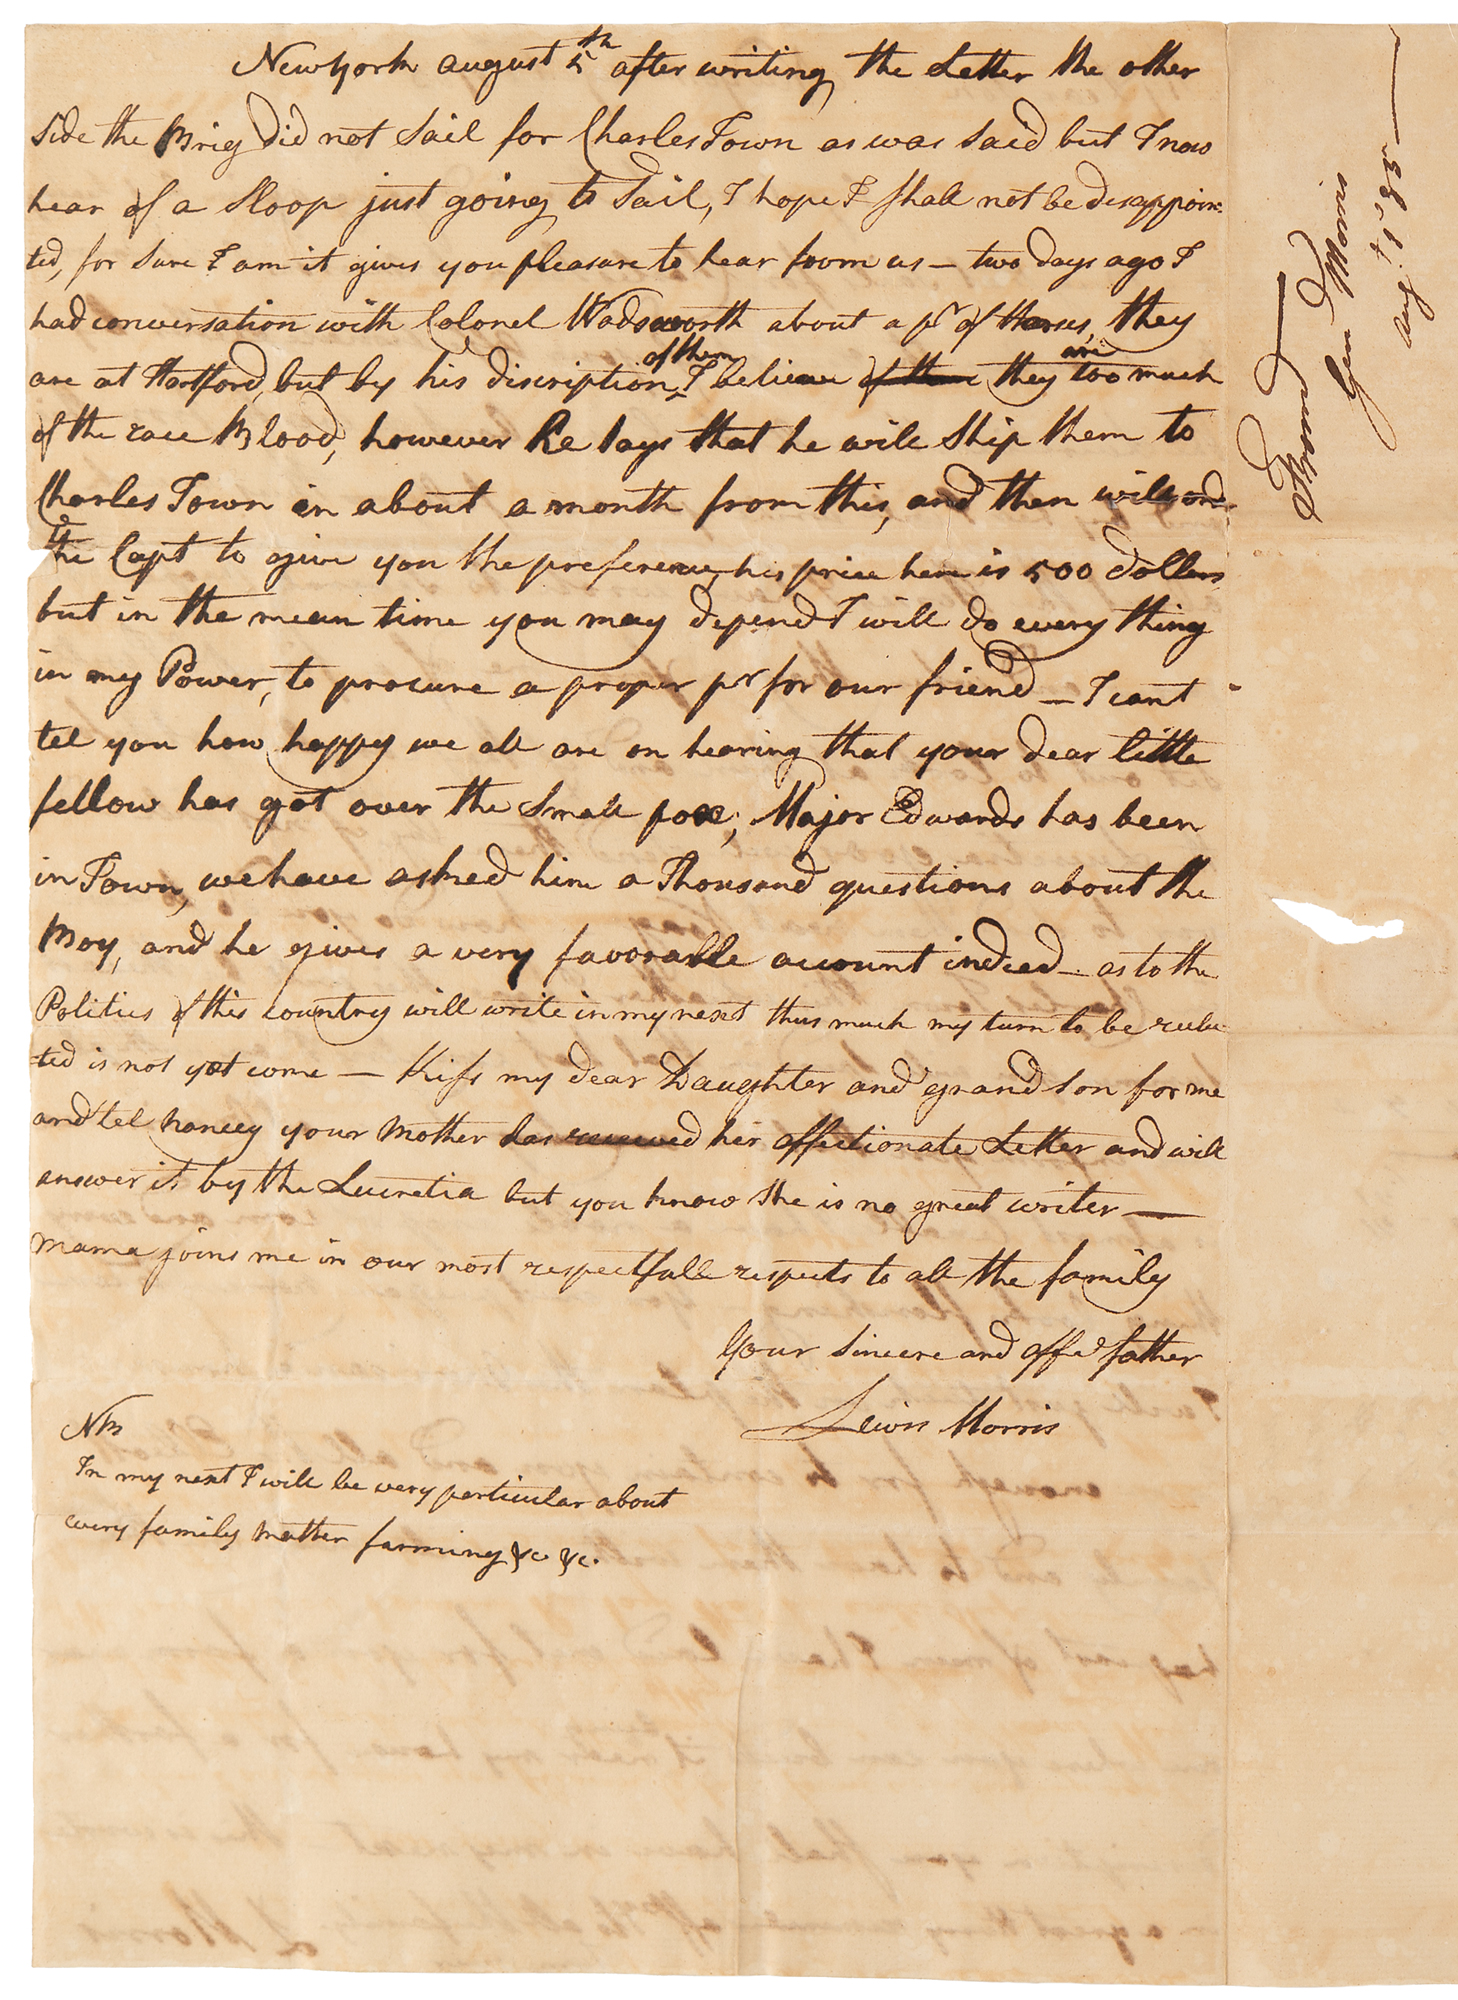 New York august 5th after writing the Letter the other
Side the Brig did not Sail for Charles Town as was Said but I now
hear of a Sloop just going to Sail, I hope I shall not be disappoin-
ted, for Sure I am it gives you pleasure to hear from us — two days ago I
had conversation with Colonel Wadsworth about a pr of Horses, they
are at Hartford, but by his discription of them I believe of them they are too much
of the race Blood, however he Says that he will Ship them to
Charles Town in about a month from this, and then will
the Capt to give you the preference, his price here is 500 dollers
but in the mean time you may depend I will do every thing
in my Power, to procure a proper pr for our friend — I cant
tel you how happy we all are on hearing that your dear little
fellow has got over the Small pox; Major Edwards has been
in Town, we have asked him a Thousand questions about the
Boy, and he gives a very favorable account indeed — as to the
Politics of this country will write in my next thus much my turn to be
ted is not yet come — Kiss my dear Daughter and grand Son for me
and tel Nancy your Mother has received her affectionate Letter and will
answer it by the Lucretia but you know She is no great writer —
Mama joins me in our most respectfull respects to all the family
Your Sincere and affe father
Lewis Morris
NB
In my next I will be very particular about
every family matter farming &c &c.
From
Genl Morris
Augt 1785